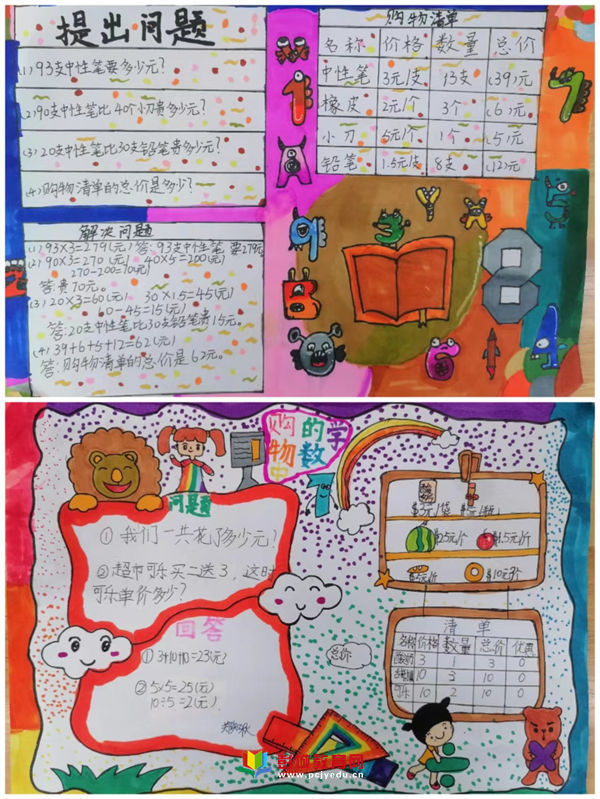 提出问题
(1)93支中性笔要多少元?
(2)90支中性笔比40个小刀贵多少元?
(3)20支中性笔比30支铅笔贵多少元?
(4)购物清单的总价是多少?
购物清单
名称 价格 数量 总价
中性笔 3元/支 13支 (39)元
橡皮 2元/个 3个 (6)元
小刀 5元/个 1个 (5)元
铅笔 1.5元/支 8支 (12)元
解决问题
(1)93×3=279(元)答:93支中性笔要279元
(2)90×3=270(元) 40×5=200(元)
270-200=70(元)
答贵70元。
(3)20×3=60(元) 30×1.5=45(元)
60-45=15(元)
答:20支中性笔比30支铅笔贵15元。
(4)39+6+5+12=62(元)
答:购物清单的总价是62元。
购物中的数学
问题
①我们一共花了多少元?
②超市可乐买二送3,这时
可乐单价多少?
回答
①3+10+10=23(元)
②5×5=25(元)
10÷5=2(元)
总价
$3元/袋
$5元/瓶
$25元/个
$1.5元/斤
$5元/斤
$10元3个
清单
名称 价格 数量 总价 优惠
3 1 3 0
10 3 10 0
可乐 10 2 10 0
彭州教育网
www.pcjyedu.cn